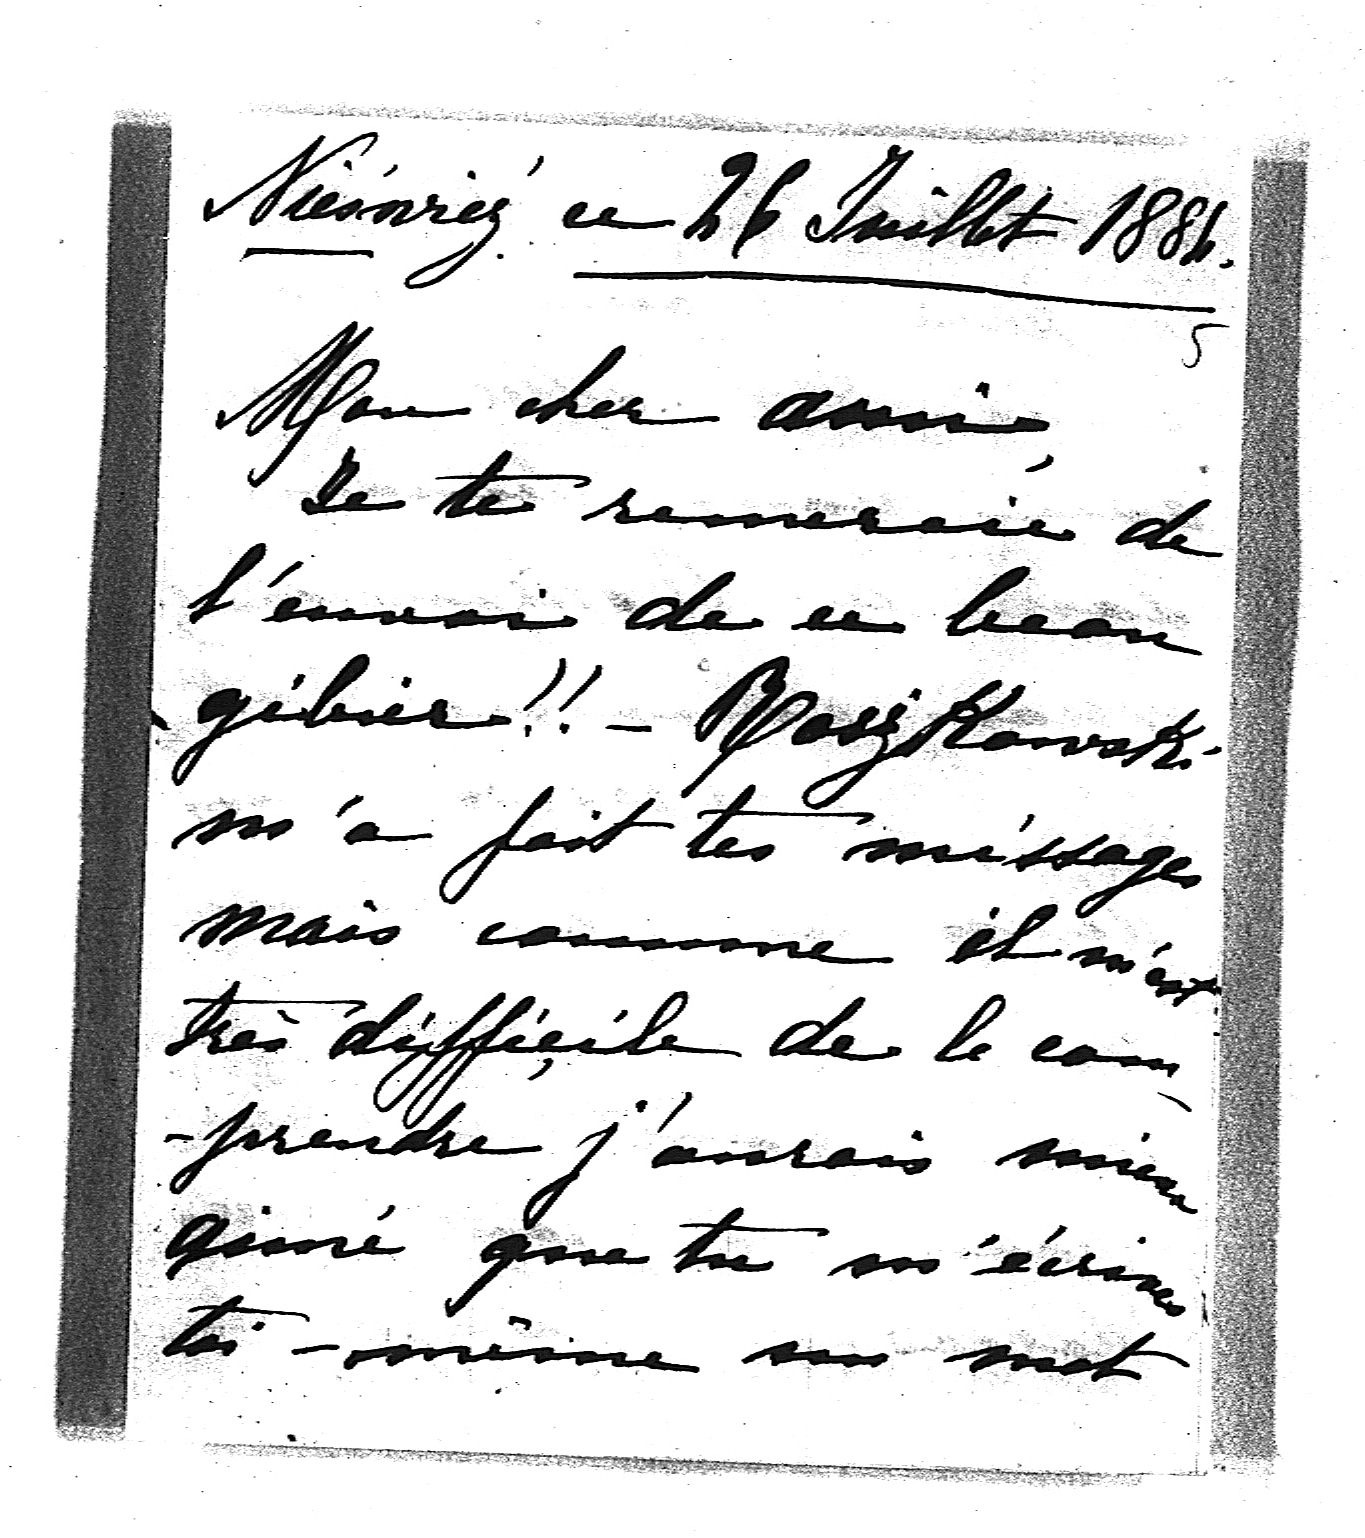 Nieśwież ce 26 Juillet 1884.
5
Mon cher ami,
Je te remercie de
l'envoi de ce beau
gibier!! – Roszkowski
m'a fait tes méssages
mais comme il m'est
très difficile de le com
-prendre j'aurais mieux
aimé que tu m'écrives
toi-même un mot